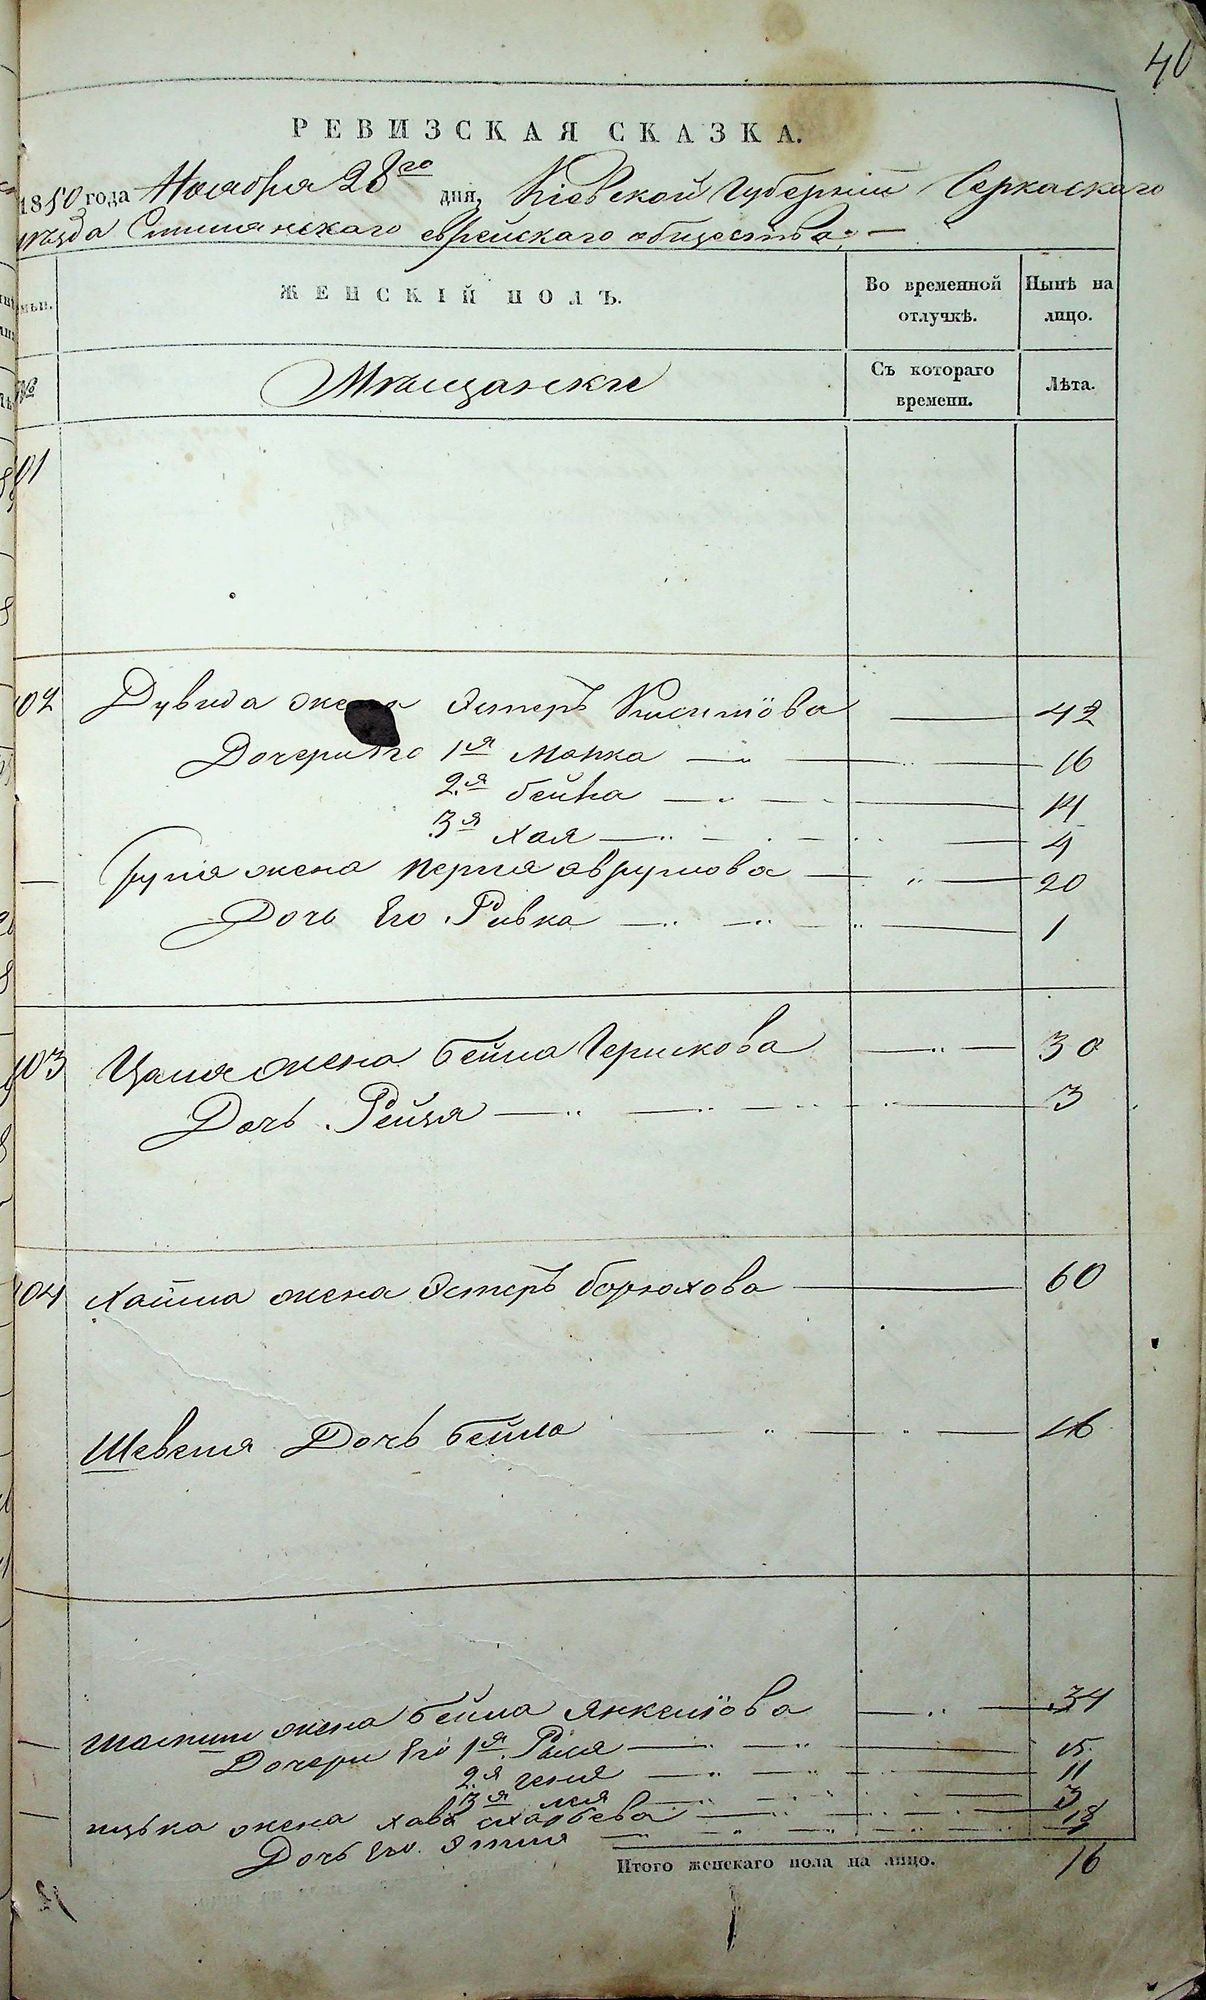 40
РЕВИЗСКАЯ СКАЗКА.
1850 года Ноября 28го дня, Кіевской Губерніи Черкаскаго
уѣзда еврейскаго общества. —
ЖЕНСКІЙ ПОЛЪ.
Во временной отлучкѣ.
Нынѣ на лицо.
№
Мѣщанки
Съ котораго времени.
Лѣта.
101
102 Дувида жена Эстеръ 42
Дочери его 1я Манка — 16
2я бейла — 14
3я Хая — 4
— жена Перля Аврумова — 20
Дочь Его Ривка — 1
103 жена бейла Гершкова — 30
Дочь Рейзя — 3
104 Хаима жена Эстеръ борюхова — 60
Шевеля Дочь бейла — 16
— жена бейла Янкеліова — 34
Дочери Его 1я Рыля — 15
2я геня — 11
3я лея — 3
— ицька жена хава — 18
Дочь Его Этля —
Итого женскаго пола на лицо. 16